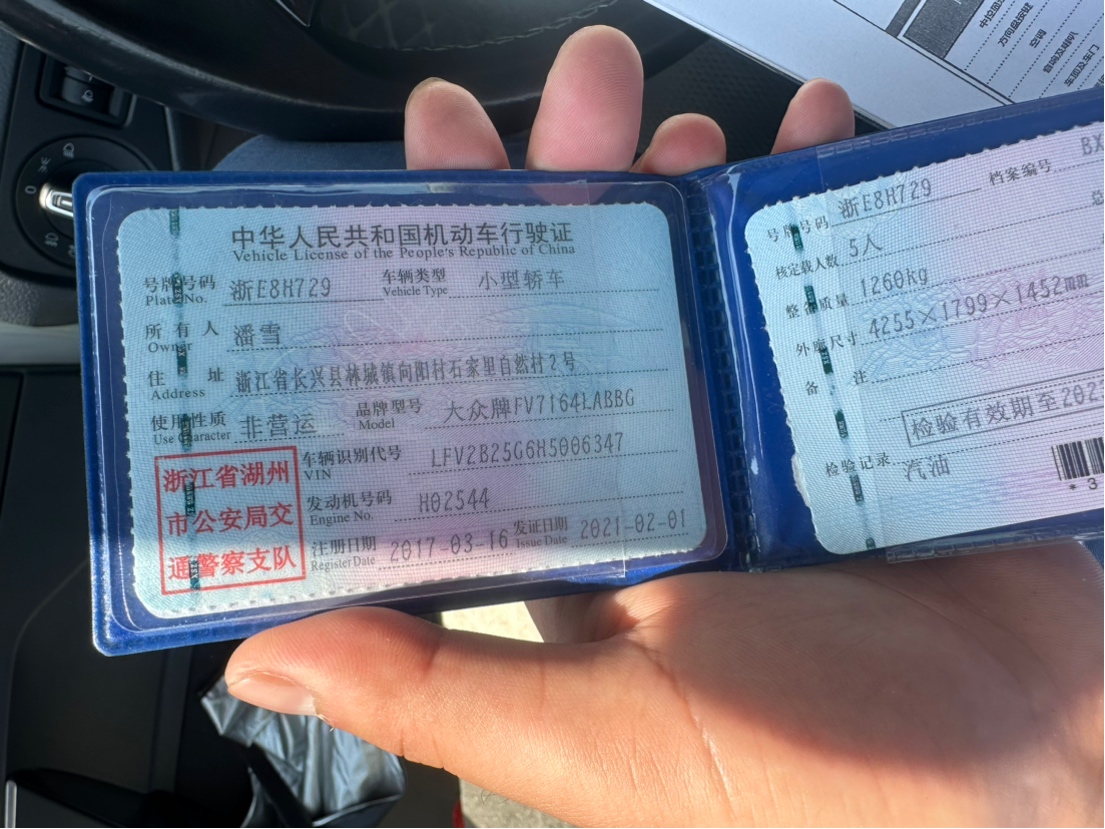 中华人民共和国机动车行驶证
Vehicle License of the People's Republic of China
号牌号码 浙E8H729 车辆类型 小型轿车
Plate No. Vehicle Type
所有人 潘雪
Owner
住址 浙江省长兴县林城镇向阳村石家里自然村2号
Address
使用性质 非营运 品牌型号 大众牌FV7164LABBG
Use Character Model
浙江省湖州
市公安局交
通警察支队
车辆识别代号 LFV2B25G6H5006347
VIN
发动机号码 H02544
Engine No.
注册日期 2017-03-16 发证日期 2021-02-01
Register Date Issue Date
号牌号码 浙E8H729 档案编号 BX
核定载人数 5人 总
整备质量 1260kg
外廓尺寸 4255×1799×1452mm
备注
检验有效期至202
检验记录 汽油
*3
方向盘按键
空调